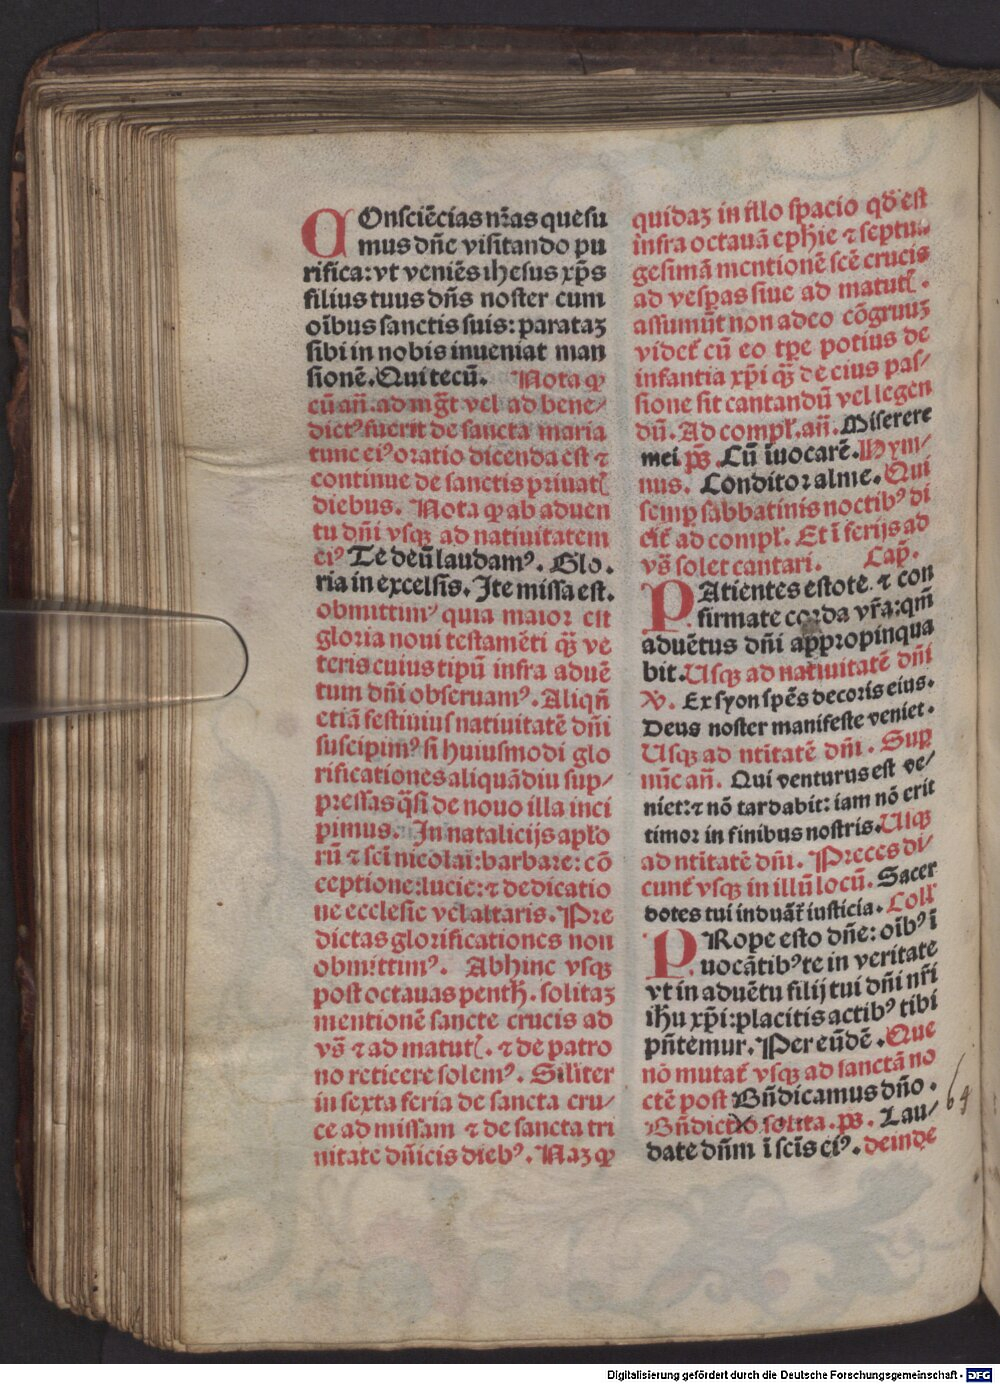 COnsciēcias nr̄as quesu
mus dn̄e visitando pu
rifica: vt veniēs ihesus xp̄s
filius tuus dn̄s noster cum
oībus sanctis suis: parataꝫ
sibi in nobis inueniat man
sionē. Qui tecū. Nota ꝙ
cū an̄. ad mḡt vel ad bene⸗
dictꝰ fuerit de sancta maria
tunc eiꝰ oratio dicenda est ⁊
continue de sanctis priuatꝭ
diebus. Nota ꝙ ab aduen
tu dn̄i vsqꝫ ad natiuitatem
eiꝰ Te deū laudamꝰ. Glo.
ria in excelsis. Ite missa est.
obmittimꝰ quia maior est
gloria noui testamēti qꝫ̄ ve
teris cuius tipū infra aduē
tum dn̄i obseruamꝰ. Aliqn̄
etiā festiuius natiuitatē dn̄i
suscipimꝰ si huiusmodi glo
rificationes aliquādiu sup⸗
pressas qͣsi de nouo illa inci
pimus. In natalicijs apl̄o
rū ⁊ scī nicolai: barbare: cō
ceptione: lucie: ⁊ dedicatio
ne ecclesie vel altaris. Pre
dictas glorificationes non
obmittimꝰ. Abhinc vsqꝫ
post octauas penth̄. solitaꝫ
mentionē sancte crucis ad
vs̄ ⁊ ad matutꝭ. ⁊ de patro
no reticere solemꝰ. Silīter
in sexta feria de sancta cru⸗
ce ad missam ⁊ de sancta tri
nitate dn̄icis diebꝰ. Naꝫ ꝙ
quidaꝫ in illo spacio qd̄ est
infra octauā eph̄ie ⁊ septu⸗
gesimā mentionē scē crucis
ad vesꝑas siue ad matutꝭ.
assumūt non adeo cōgruuꝫ
videt̄ cū eo tꝑe potius de
infantia xp̄i qꝫ̄ de eius pas⸗
sione sit cantandū vel legen
dū. Ad compl̄. an̄. Miserere
mei ps̄. Cū īuocarē. Hym⸗
nus. Conditor alme. Qui
semꝑ sabbatinis noctibꝰ di
cit̄ ad compl̄. Et ī ferijs ad
vs̄ solet cantari. Cap̄.
PAtientes estote. ⁊ con
firmate corda vr̄a: qm̄
aduētus dn̄i appropinqua
bit. Usqꝫ ad natiuitatē dn̄i
℣. Ex syon spēs decoris eius.
Deus noster manifeste veniet.
Usqꝫ ad ntitatē dn̄i. Suꝑ
nūc an̄. Qui venturus est ve⸗
niet: ⁊ nō tardabit: iam nō erit
timor in finibus nostris. Usqꝫ
ad ntitatē dn̄i. Preces di⸗
cunt̄ vsqꝫ in illū locū. Sacer
dotes tui induāt̄ iusticia. Coll̄
PRope esto dn̄e: oībꝰ ī
uocātibꝰ te in veritate
vt in aduētu filij tui dn̄i nr̄i
ih̄u xp̄i: placitis actibꝰ tibi
pn̄temur. Per eūdē. Que
nō mutat̄ vsqꝫ ad sanctā no
ctē post Bn̄dicamus dn̄o.
Bn̄dictio solita. ps̄. Lau⸗
date dn̄m ī scīs eiꝰ. deinde
Digitalisierung gefördert durch die Deutsche Forschungsgemeinschaft - DFG